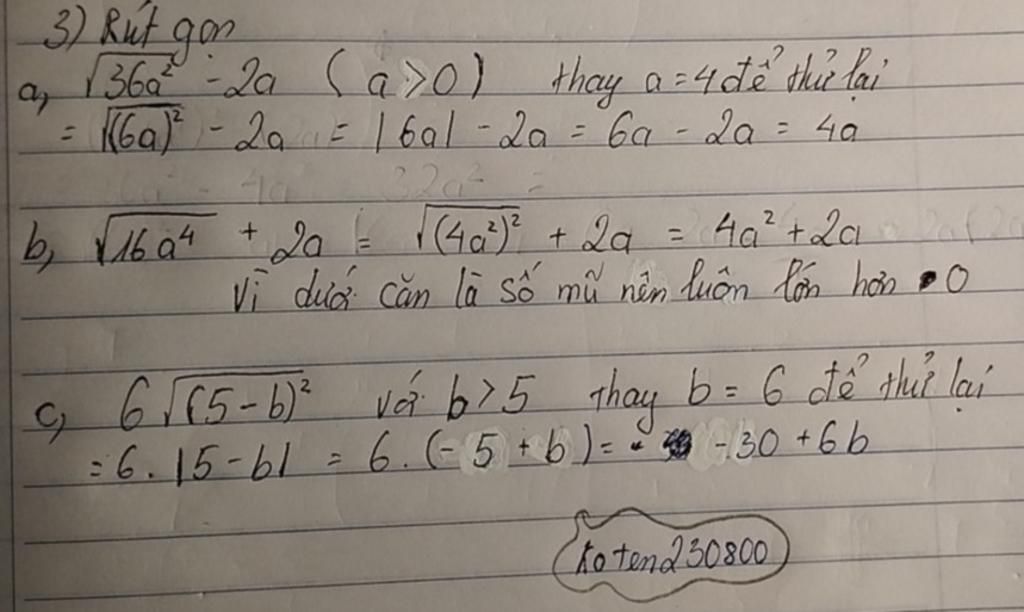 3) Rút gọn
a, √36a² - 2a (a > 0) thay a = 4 để thử lại
= √(6a)² - 2a = |6a| - 2a = 6a - 2a = 4a
b, √16a⁴ + 2a = √(4a²)² + 2a = 4a² + 2a
Vì dưới căn là số mũ nên luôn lớn hơn 0
c, 6√(5-b)² với b > 5 thay b = 6 để thử lại
= 6 . |5 - b| = 6 . (- 5 + b) = - 30 + 6b
koten230800